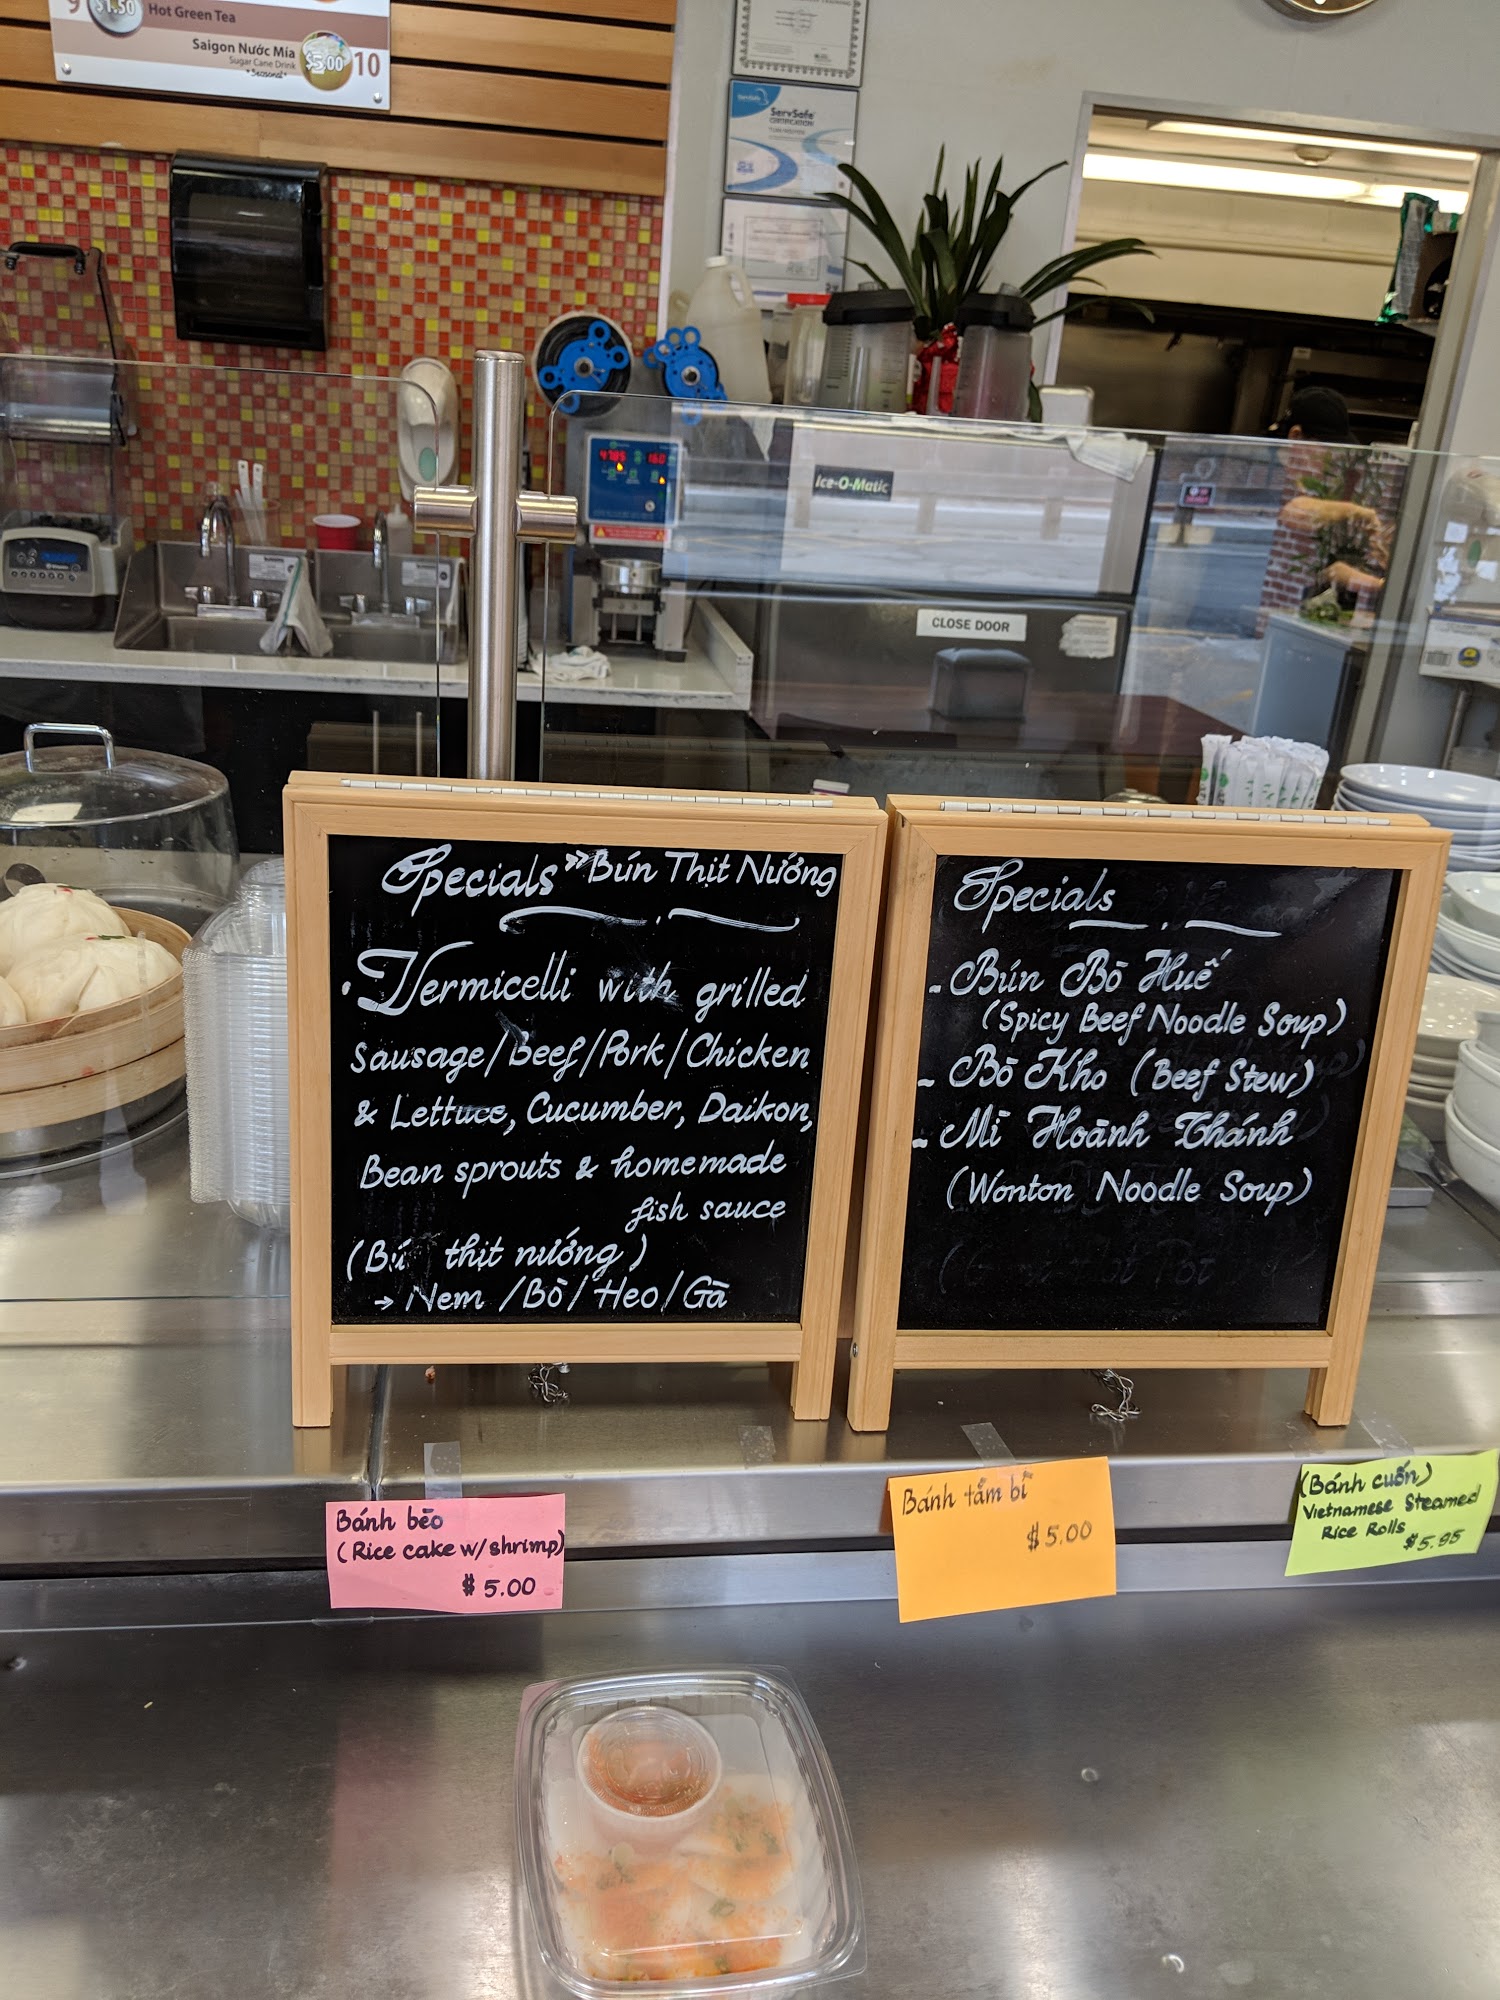 9 $1.50 Hot Green Tea
Saigon Nước Mía $5.00 10
Sugar Cane Drink
*Seasonal*
ServSafe
CERTIFICATION
Ice-O-Matic
CLOSE DOOR
Specials » Bún Thịt Nướng
• Vermicelli with grilled
Sausage/Beef/Pork/Chicken
& Lettuce, Cucumber, Daikon,
Bean sprouts & homemade
fish sauce
(Bú thịt nướng)
→ Nem/Bò/Heo/Gà
Specials
- Bún Bò Huế
(Spicy Beef Noodle Soup)
- Bò Kho (Beef Stew)
- Mì Hoành Thánh
(Wonton Noodle Soup)
Bánh bèo
(Rice cake w/shrimp)
$5.00
Bánh tằm bì
$5.00
(Bánh cuốn)
Vietnamese Steamed
Rice Rolls
$5.95